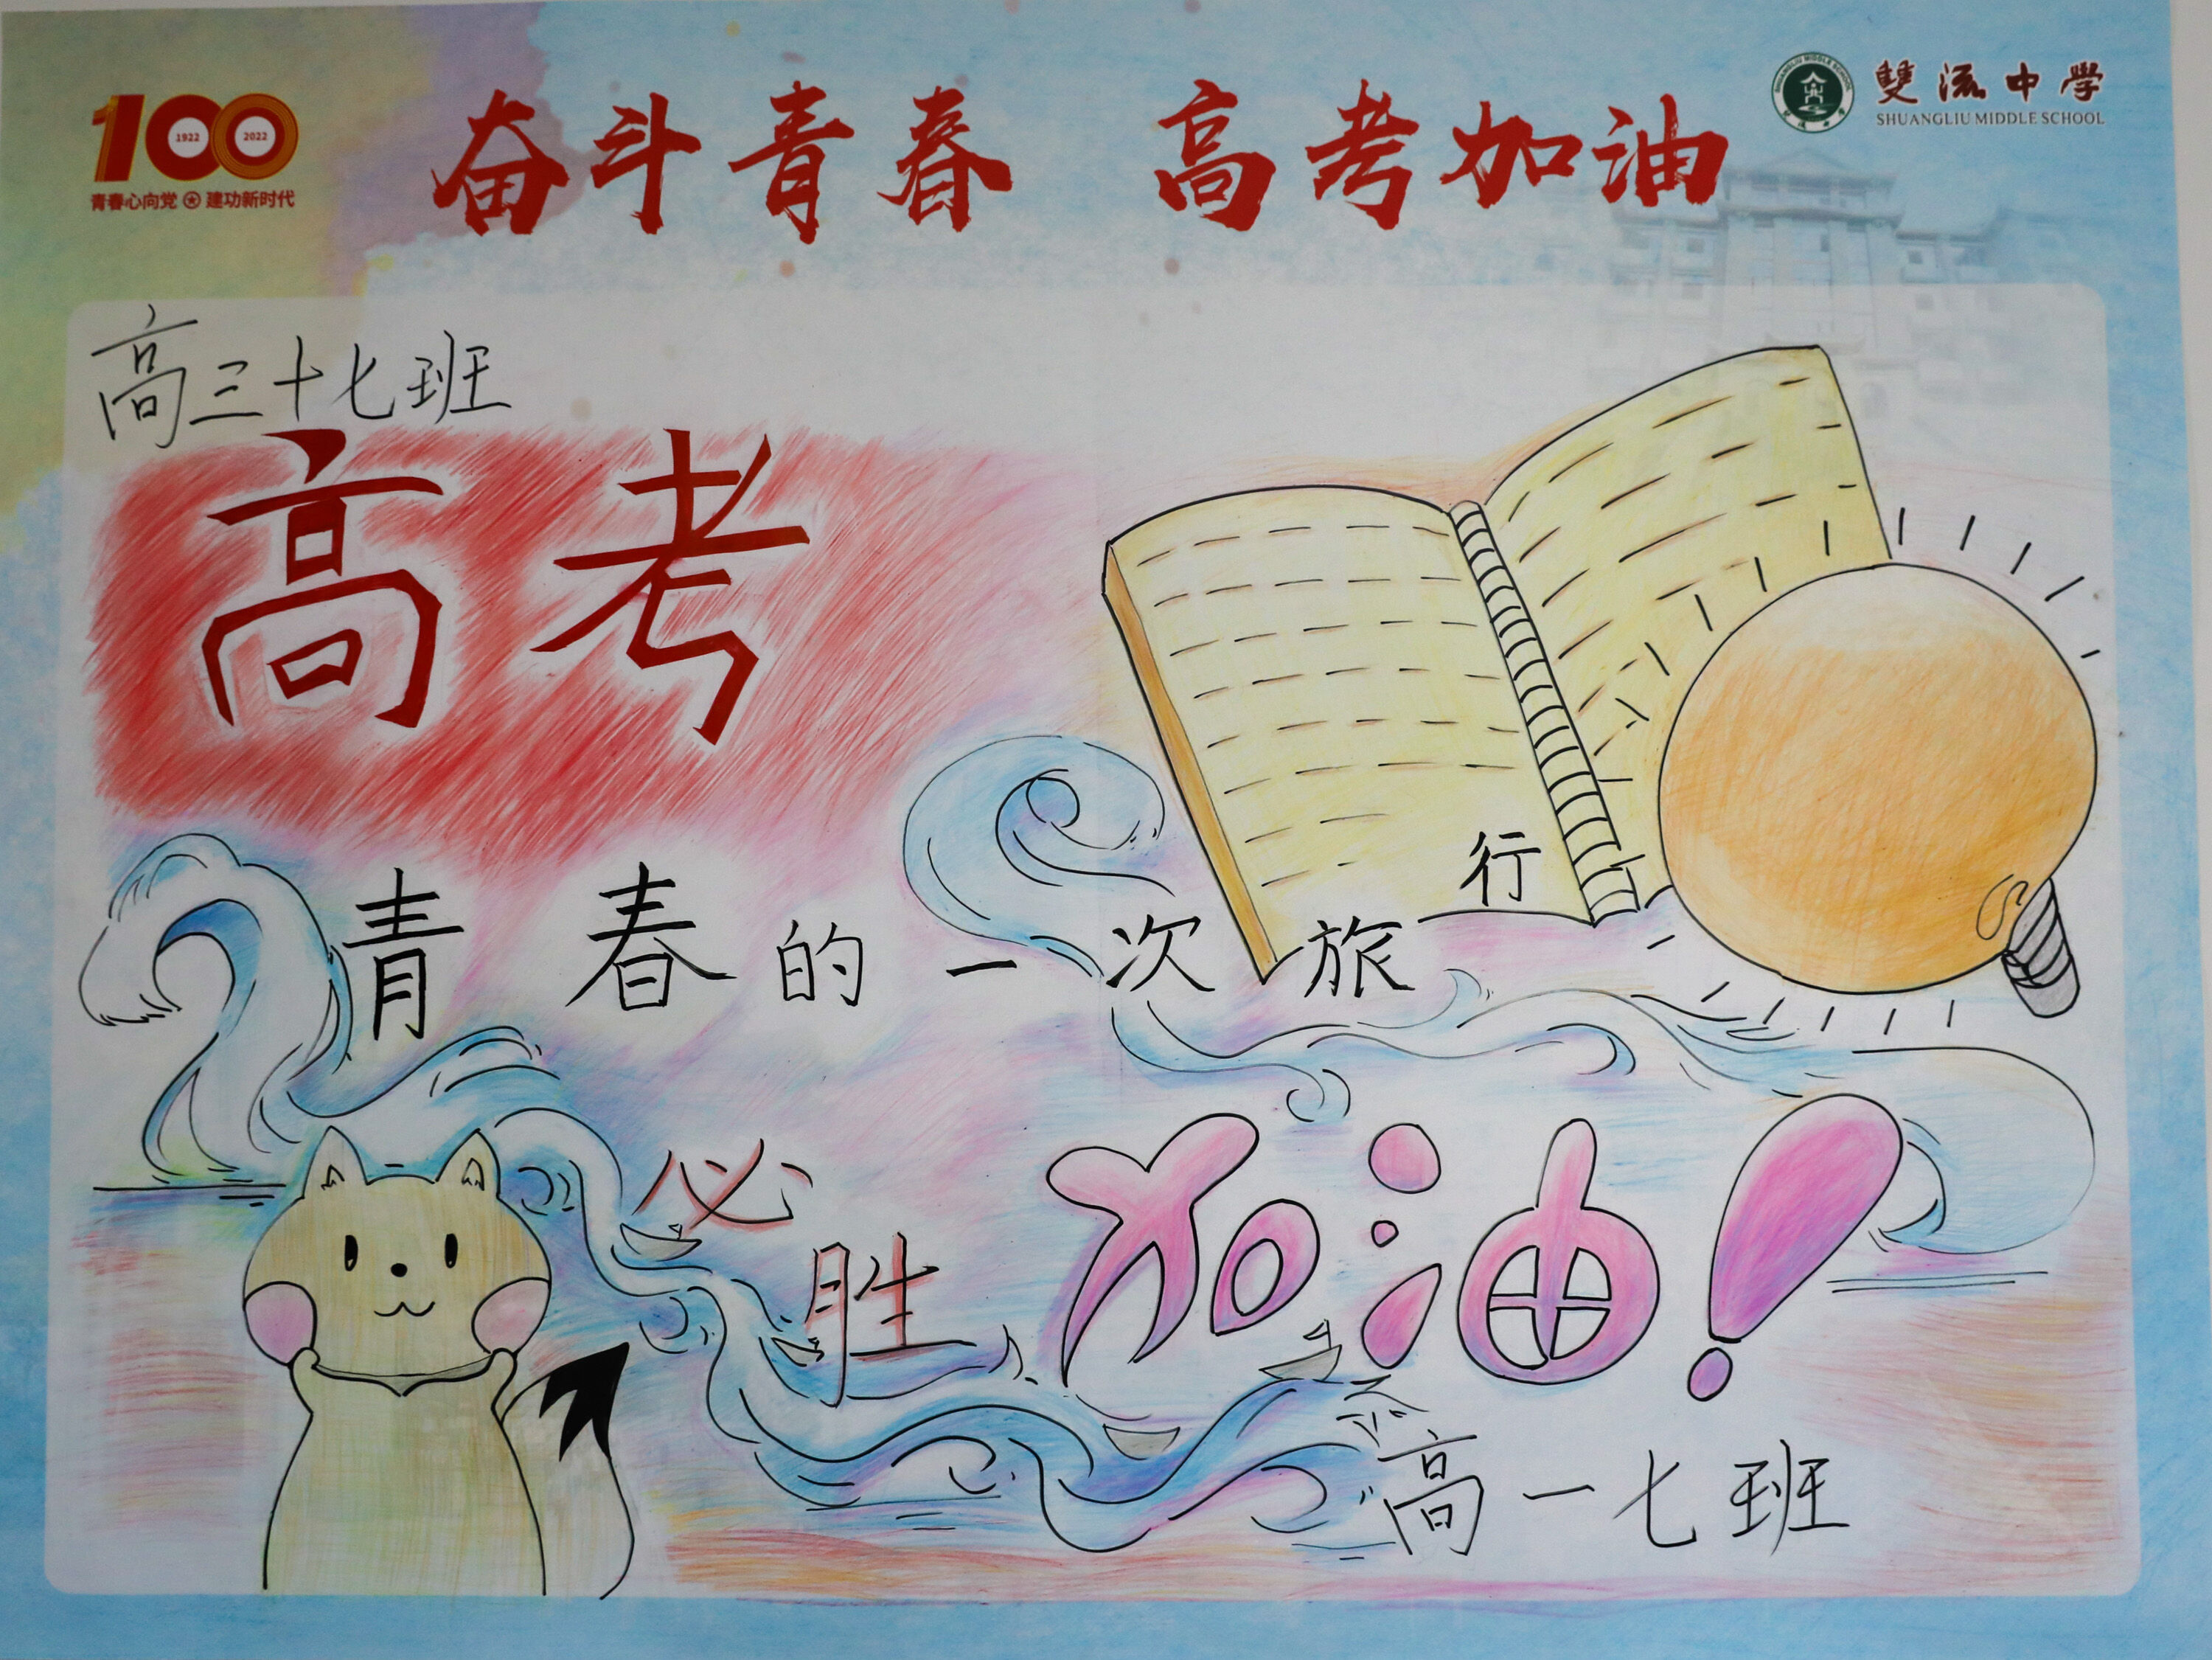 100
1922 2022
青春心向党 建功新时代
奋斗青春 高考加油
雙流中學
SHUANGLIU MIDDLE SCHOOL
高三十七班
高考
青春的一次旅行
必胜
加油!
高一七班